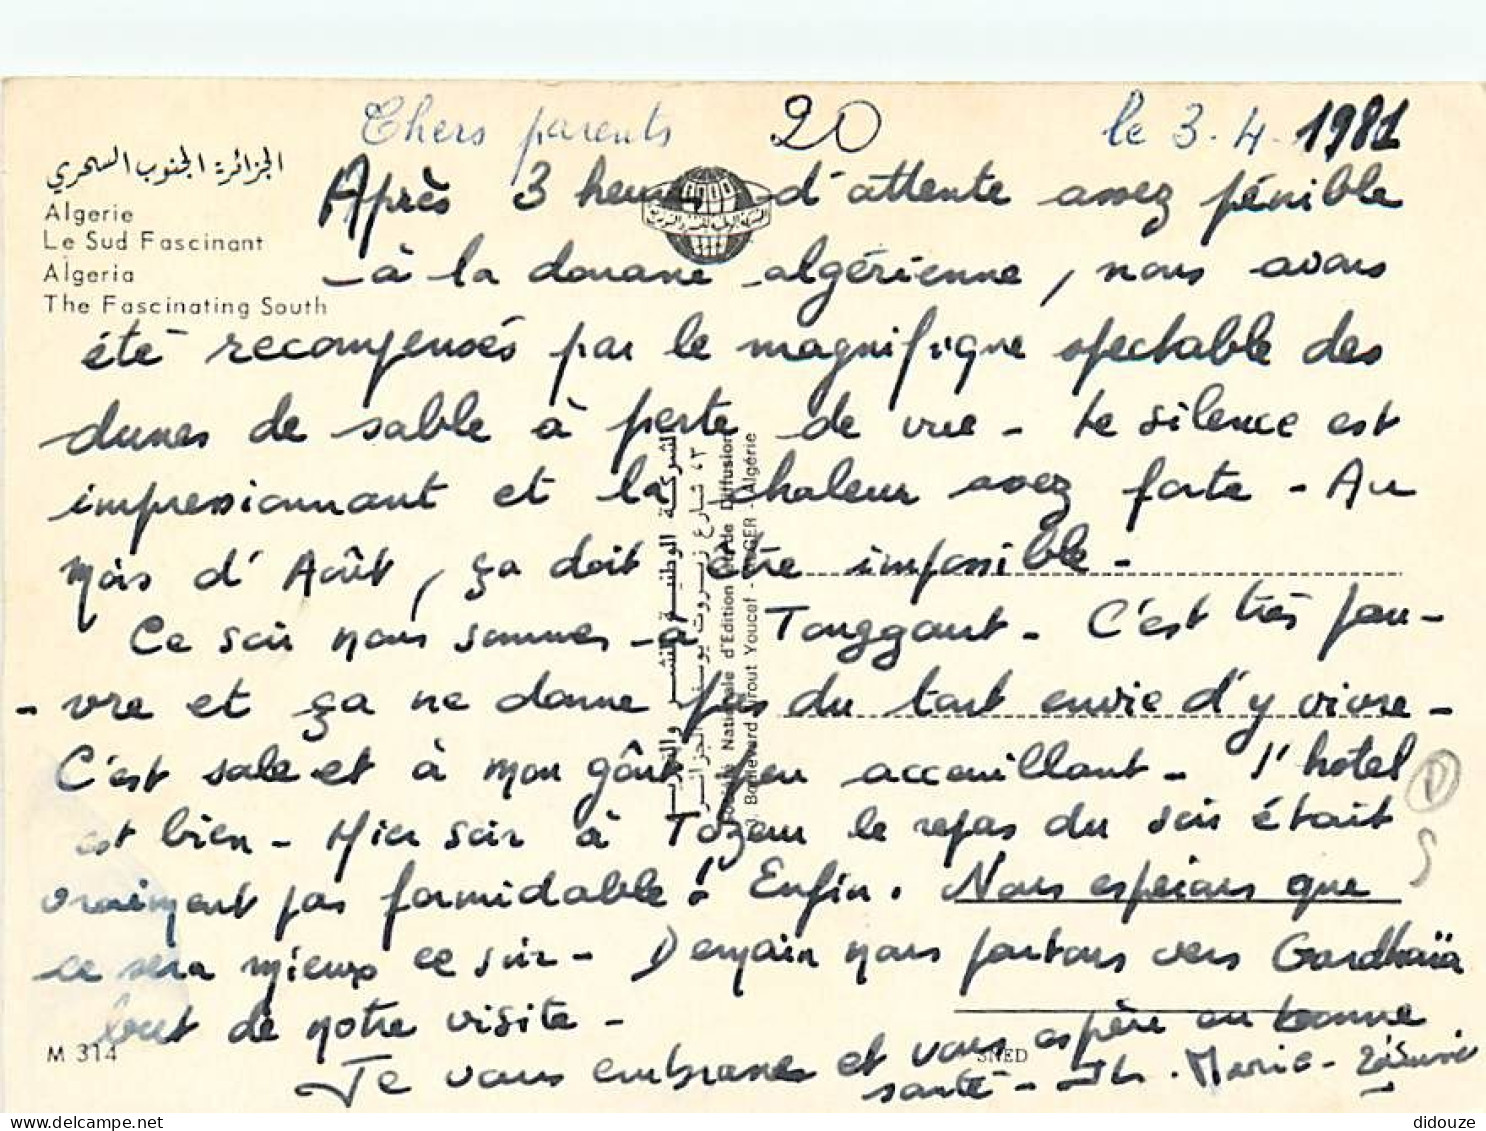 Chers parents 20 le 3.4.1981
الجزائرية الجنوب السحري
Algerie
Le Sud Fascinant
Algeria
The Fascinating South
Après 3 heures d'attente assez pénible
à la douane algérienne, nous avons
été recompensés par le magnifique spectable des
dunes de sable à perte de vue - Le silence est
impressionnant et la chaleur assez forte - Au
mois d'Août, ça doit être impossible -
Ce soir nous sommes à Touggourt - C'est très pau-
- vre et ça ne donne pas du tout envie d'y vivre -
C'est sale et à mon goût peu acceuillant - l'hotel
est bien - Hier soir à Tozeur le repas du soir était
vraiment pas formidable! Enfin. Nous espérons que
ce sera mieux ce soir - Demain nous partons vers Gardhaïa
but de notre visite -
Je vous embrasse et vous espère en bonne
santé - Marie -
M 314
SNED
Société Nationale d'Edition et de Diffusion
Boulevard Zirout Youcef - ALGER - Algérie
didouze